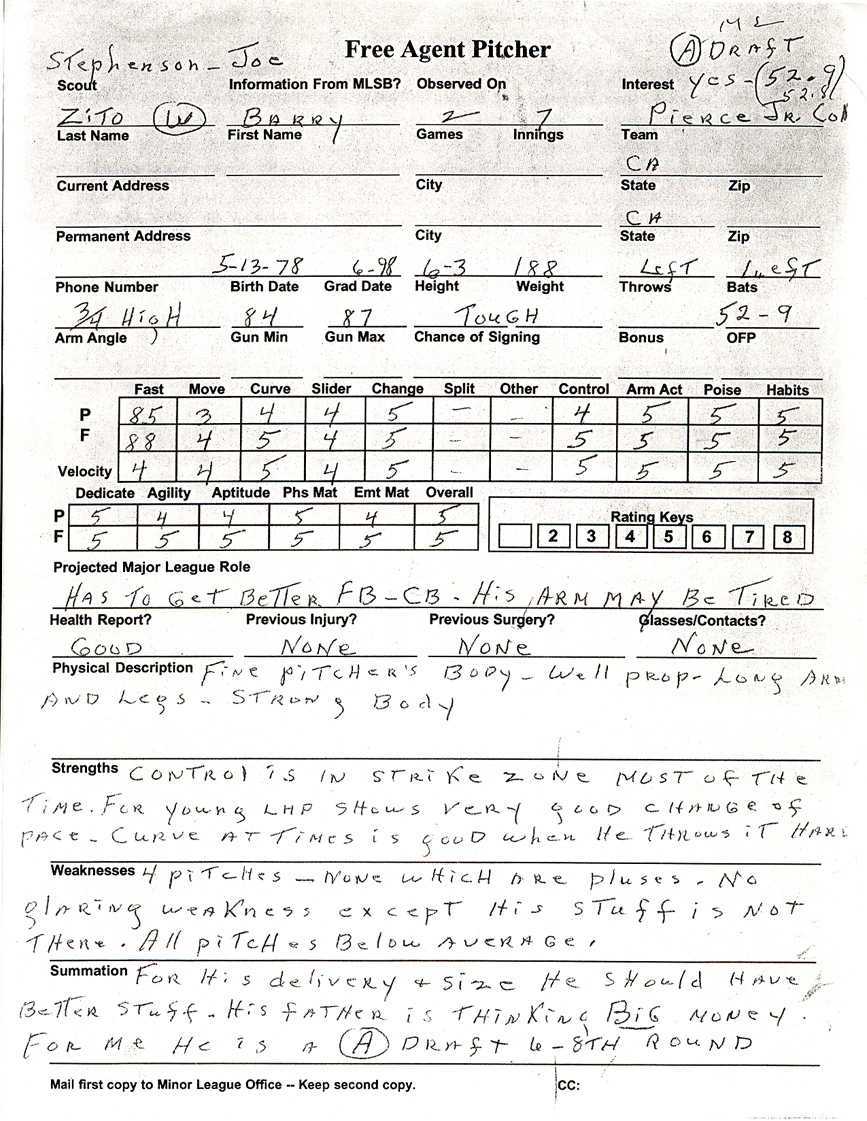 ML
Stephenson - Joe Free Agent Pitcher (A) DRAFT
Scout Information From MLSB? Observed On Interest yes - (52.9)
52.8
ZITO BARRY 2 7 PIERCE JR. Col
Last Name First Name Games Innings Team
CA
Current Address City State Zip
CA
Permanent Address City State Zip
5-13-78 6-98 6-3 188 LefT LefT
Phone Number Birth Date Grad Date Height Weight Throws Bats
3/4 HigH 84 87 TOUGH 52-9
Arm Angle Gun Min Gun Max Chance of Signing Bonus OFP
Fast Move Curve Slider Change Split Other Control Arm Act Poise Habits
P 85 3 4 4 5 — — 4 5 5 5
F 88 4 5 4 5 — — 5 5 5 5
Velocity 4 4 5 4 5 — — 5 5 5 5
Dedicate Agility Aptitude Phs Mat Emt Mat Overall
P 5 4 4 5 4 5 Rating Keys
F 5 5 5 5 5 5 2 3 4 5 6 7 8
Projected Major League Role
HAS TO GeT BeTTeR FB-CB. His ARM MAY Be TiReD
Health Report? Previous Injury? Previous Surgery? Glasses/Contacts?
GOOD NONe NONe NONe
Physical Description FiNe piTcHeR's BODY - Well pRop - LoNg ARM
AND Legs - STRONg Body
Strengths CONTROl is IN STRiKe zoNe MOST OF THe
TiMe. FoR YouNg LHP SHows VeRy gooD CHANGe of
pAce - CuRVe AT TiMes is gooD when He THRows iT HARD
Weaknesses 4 piTcHes — NoNe wHicH ARe pluses. No
glARiNg weAKNess except His STuff is NOT
THeRe. All piTcHes Below AveRAge.
Summation FoR His deliveRy + size He SHould HAVe
BeTTeR STuff. His fATHeR is THiNKiNg BiG MoNey.
FoR Me He is A (A) DRAfT 6-8TH RouND
Mail first copy to Minor League Office -- Keep second copy. CC: